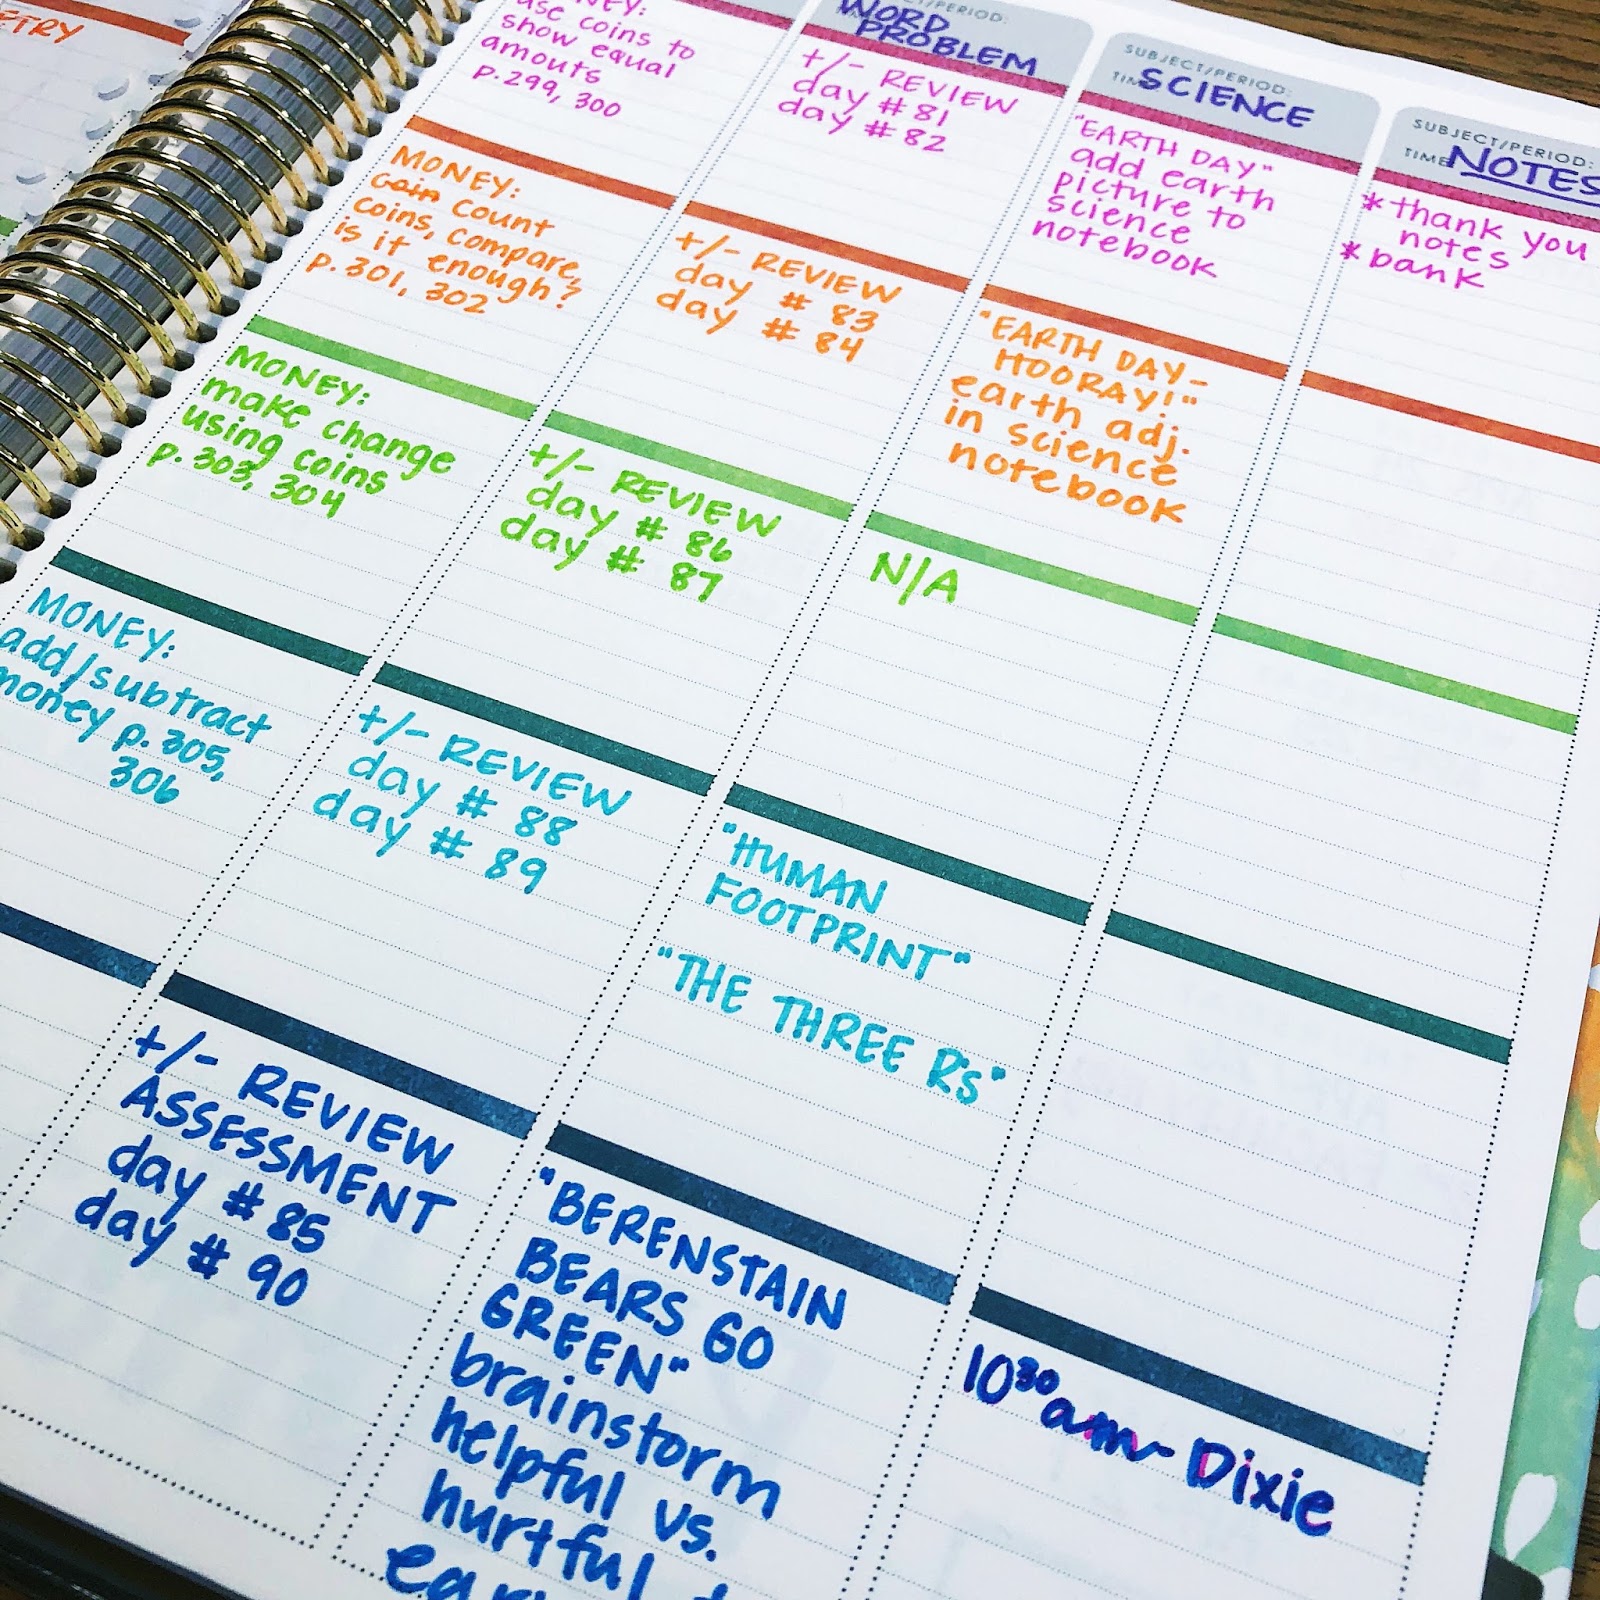 ETRY
use coins to
show equal
amouts
p. 299, 300
SUBJECT/PERIOD:
WORD
PROBLEM
+/- REVIEW
day # 81
day # 82
SUBJECT/PERIOD:
SCIENCE
"EARTH DAY"
add earth
picture to
science
notebook
SUBJECT/PERIOD:
TIME
NOTES
*thank you
notes
*bank
MONEY:
Coin count
coins, compare,
is it enough?
p. 301, 302
+/- REVIEW
day # 83
day # 84
"EARTH DAY-
HOORAY!"
earth adj.
in science
notebook
MONEY:
make change
using coins
p. 303, 304
+/- REVIEW
day # 86
day # 87
N/A
MONEY:
add/subtract
money p. 305,
306
+/- REVIEW
day # 88
day # 89
"HUMAN
FOOTPRINT"
"THE THREE R's"
+/- REVIEW
ASSESSMENT
day # 85
day # 90
"BERENSTAIN
BEARS GO
GREEN"
brainstorm
helpful vs.
hurtful
10³⁰ am- Dixie